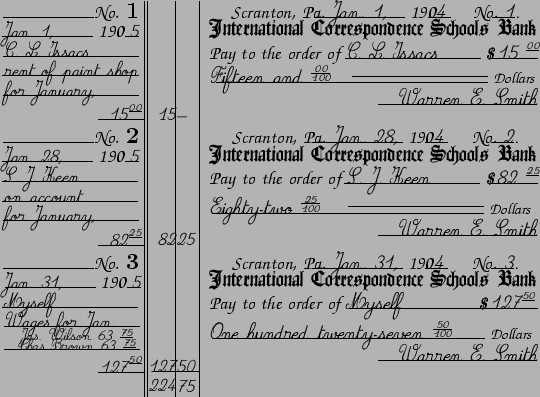 No. 1
Jan 1, 1905
C L Issacs
rent of paint shop
for January,
15 00
15 —
Scranton, Pa. Jan. 1, 1904 No. 1.
International Correspondence Schools Bank
Pay to the order of C. L. Issacs $15 00
Fifteen and 00/100 Dollars
Warren E. Smith
No. 2
Jan 28, 1905
S J Keen
on account
for January,
82 25
82 25
Scranton, Pa. Jan. 28, 1904 No. 2.
International Correspondence Schools Bank
Pay to the order of S J Keen $82 25
Eighty-two 25/100 Dollars
Warren E. Smith
No. 3
Jan 31, 1905
Myself
Wages for Jan
Jas. Wilson 63 75
Chas Brown 63 75
127 50
127 50
224 75
Scranton, Pa. Jan. 31, 1904 No. 3.
International Correspondence Schools Bank
Pay to the order of Myself $127 50
One hundred twenty-seven 50/100 Dollars
Warren E. Smith